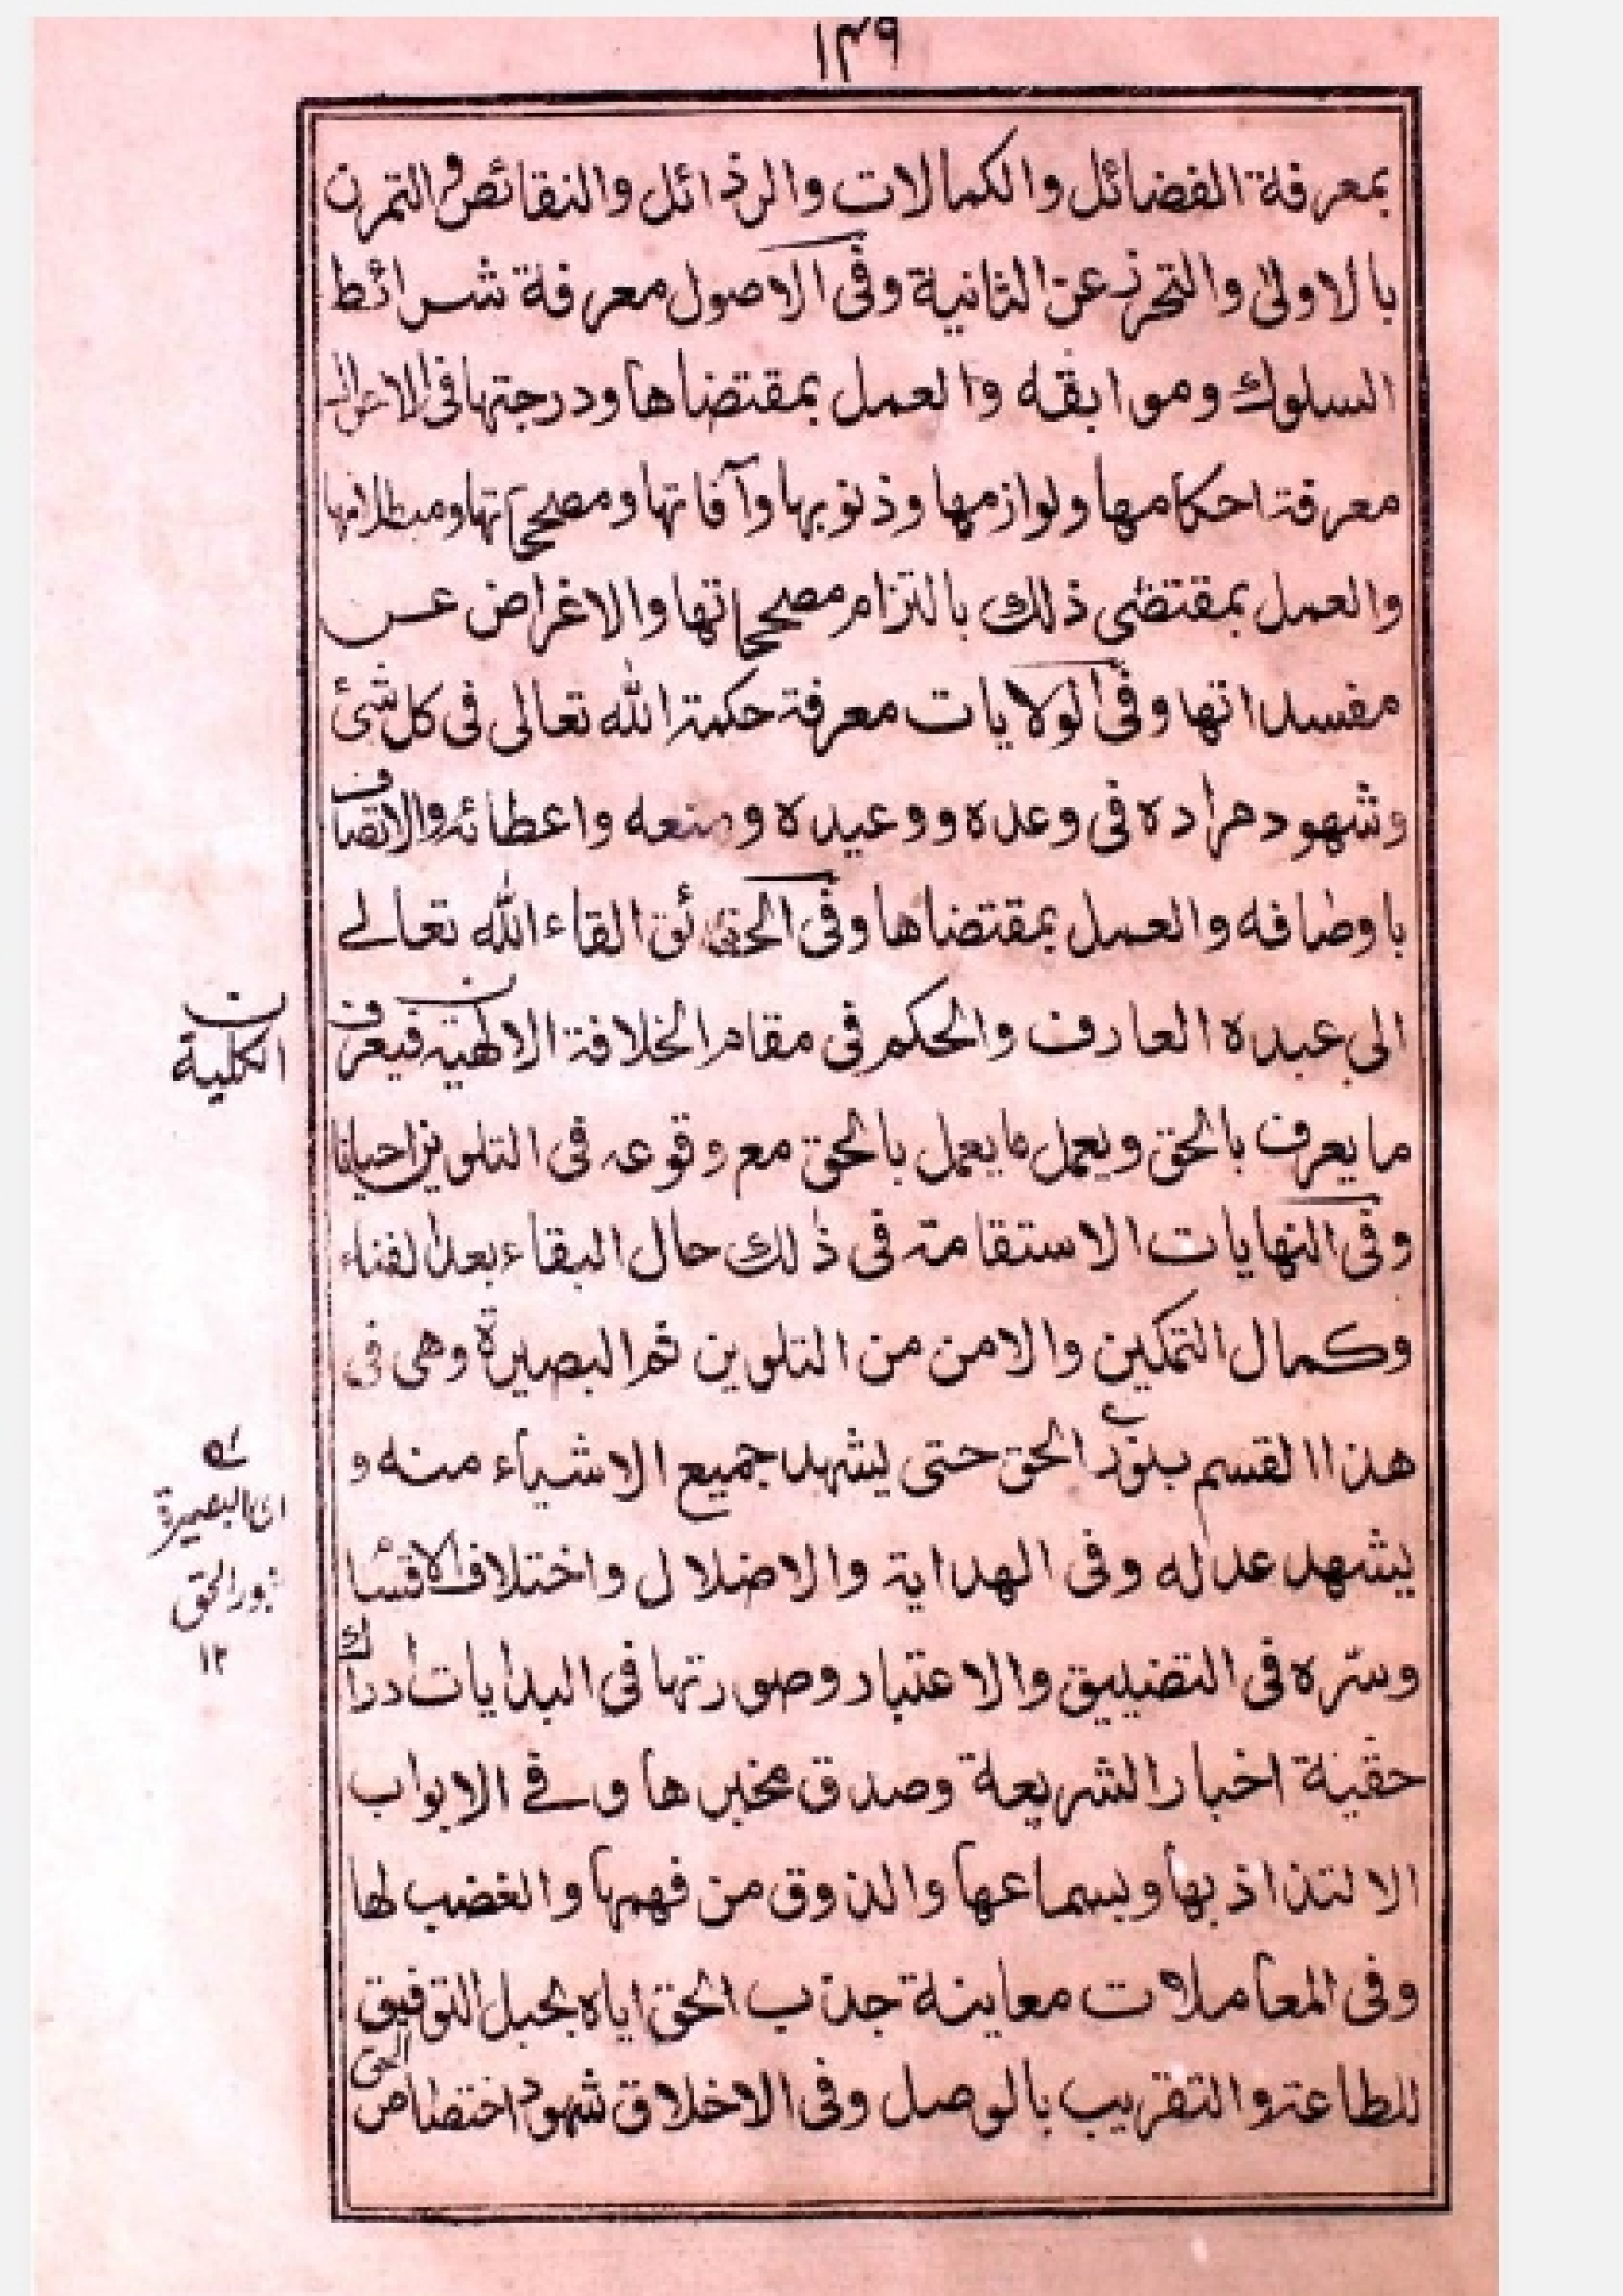 ١٣٩
بمعرفة الفضائل والكمالات والرذائل والنقائص والتمرن
بالاولى والتحرز عن الثانية وفى الاصول معرفة شرائط
السلوك وموابقه والعمل بمقتضاها ودرجتها فى
معرفة احكامها ولوازمها وذنوبها وآفاتها ومصححاتها ومبطلاتها
والعمل بمقتضى ذلك بالتزام مصححاتها والاغراض عن
مفسداتها وفى الولايات معرفة حكمة الله تعالى فى كل شئ
وشهود مراده فى وعده ووعيده ومنعه واعطائه والاتصاف
باوصافه والعمل بمقتضاها وفى الحقائق القاء الله تعالے
الى عبده العارف والحكم فى مقام الخلافة الالهية فيعرف
الكلية
ما يعرف بالحق ويعمل ما يعمل بالحق مع وقوعه فى التلوين احيانا
وفى النهايات الاستقامة فى ذلك حال البقاء بعد الفناء
وكمال التمكين والامن من التلوين ثم البصيرة وهى فى
هذا القسم بنور الحق حتى يشهد جميع الاشياء منه و
البصيرة
نور الحق
١٢
يشهد عدله وفى الهداية والاضلال واختلاف الاقسا
وسره فى التضييق والاعتبار وصورتها فى البدايات ادراك
حقية اخبار الشريعة وصدق مخبرها وفے الابواب
الالتذاذ بها وبسماعها والذوق من فهمها والغضب لها
وفى المعاملات معاينة جذب الحق اياه بحبل التوفيق
للطاعة والتقريب بالوصل وفى الاخلاق شهود اختصاص الحق